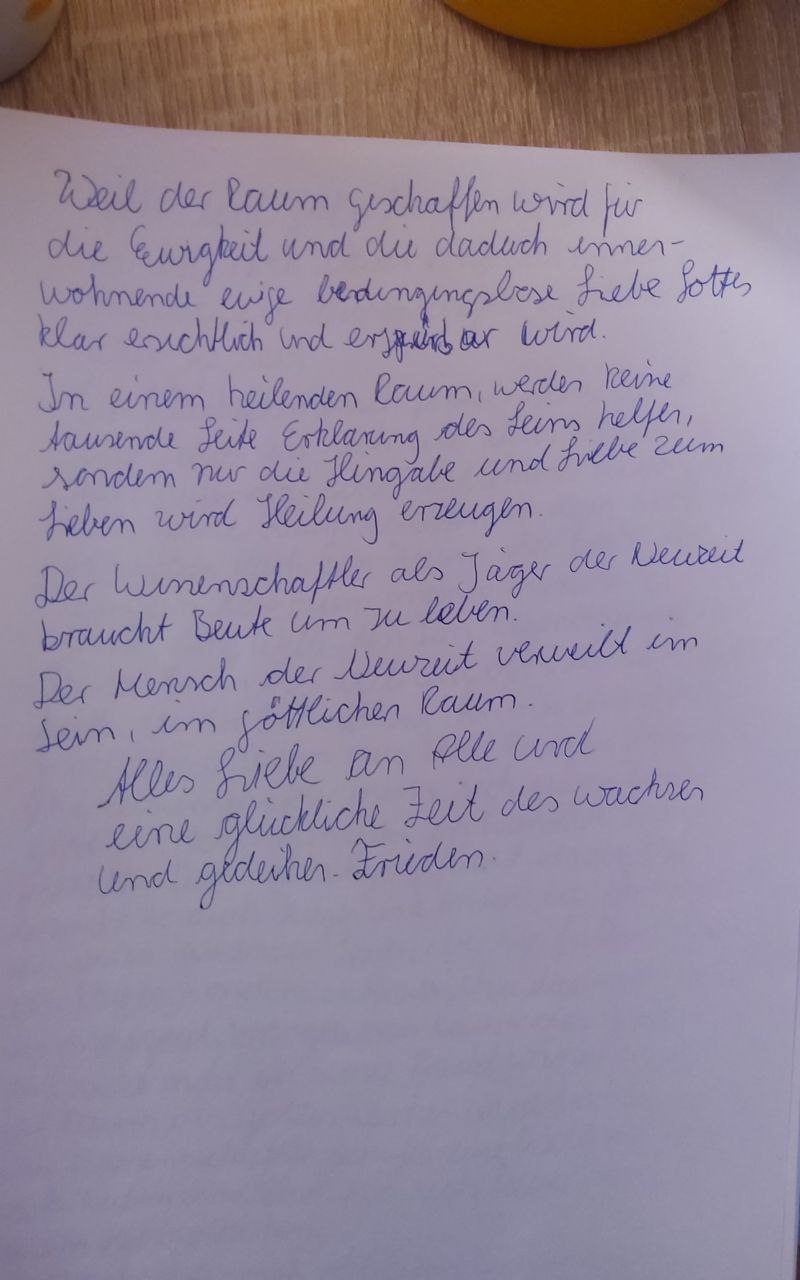 Weil der Raum geschaffen wird für
die Ewigkeit und die daduch inner-
wohnende ewige bedingungslose Liebe Gottes
klar ersichtlich und erspürbar wird.
In einem heilenden Raum, werden keine
tausende Seite Erklärung des Seins helfen,
sondern nur die Hingabe und Liebe zum
Leben wird Heilung erzeugen.
Der Wissenschaftler als Jäger der Neuzeit
braucht Beute um zu leben.
Der Mensch der Neuzeit verweilt im
Sein, im göttlichen Raum.
Alles Liebe an Alle und
eine glückliche Zeit des wachsen
und gedeihen. Frieden.